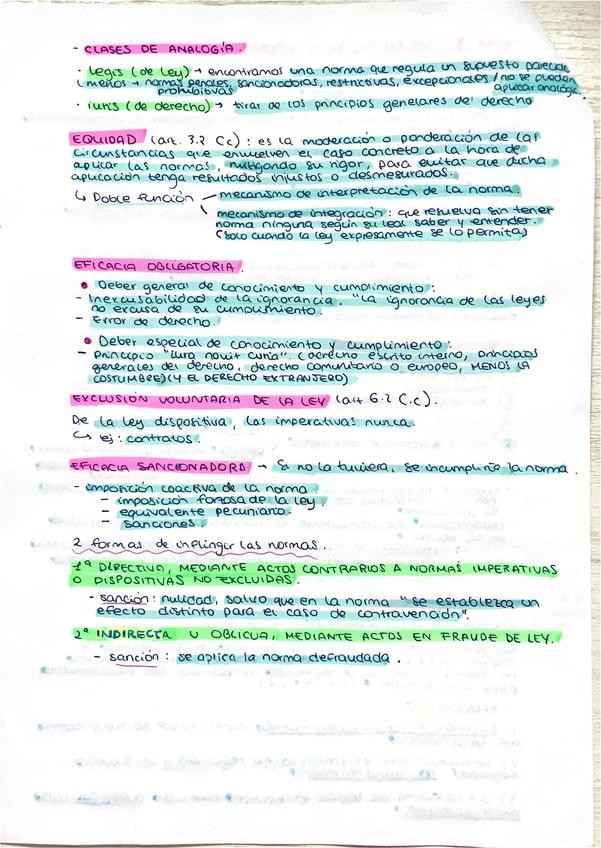 - CLASES DE ANALOGÍA.
· legis (de ley) → encontramos una norma que regula un supuesto parecido
(menos → normas penales, sancionadoras, restrictivas, excepcionales / no se pueden
prohibitivas aplicar analóg.
· iuris (de derecho) → tirar de los principios generales del derecho
EQUIDAD (art. 3.2 Cc): es la moderación o ponderación de las
circunstancias que envuelven el caso concreto a la hora de
aplicar las normas, mitigando su rigor, para evitar que dicha
aplicación tenga resultados injustos o desmesurados.
↳ Doble función – mecanismo de interpretación de la norma.
mecanismo de integración: que resuelva sin tener
norma ninguna según su leal saber y entender.
(solo cuando la ley expresamente se lo permita)
EFICACIA OBLIGATORIA.
• Deber general de conocimiento y cumplimiento:
- Inexcusabilidad de la ignorancia. "La ignorancia de las leyes
no excusa de su cumplimiento.
- Error de derecho.
• Deber especial de conocimiento y cumplimiento:
- Principio "iura novit curia". (derecho escrito interno, principios
generales del derecho, derecho comunitario o europeo, MENOS LA
COSTUMBRE) (Y EL DERECHO EXTRANJERO)
EXCLUSIÓN VOLUNTARIA DE LA LEY (art 6.2 C.c).
De la ley dispositiva, las imperativas nunca.
↳ ej: contratos.
EFICACIA SANCIONADORA → Si no la tuviera, se incumpliría la norma.
- imposición coactiva de la norma
- imposición forzosa de la ley
- equivalente pecuniario.
- sanciones.
2 formas de infringir las normas.
1ª DIRECTIVA, MEDIANTE ACTOS CONTRARIOS A NORMAS IMPERATIVAS
O DISPOSITIVAS NO EXCLUIDAS.
- sanción: nulidad, salvo que en la norma "se establezca un
efecto distinto para el caso de contravención".
2ª INDIRECTA U OBLICUA, MEDIANTE ACTOS EN FRAUDE DE LEY.
- sanción: se aplica la norma defraudada.